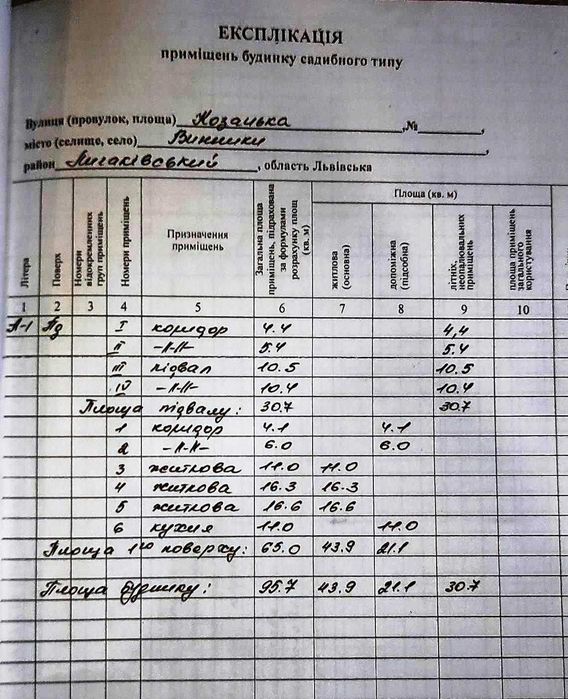 ЕКСПЛІКАЦІЯ
приміщень будинку садибного типу
Вулиця (провулок, площа) Козацька ,№ ,
місто (селище, село) Винники ,
район Личаківський , область Львівська
Літера Поверх Номери відокремленних груп приміщень Номери приміщень Призначення приміщень Загальна площа приміщень, підрахована за формулами розрахунку площ (кв. м) Площа (кв. м)
житлова (основна) допоміжна (підсобна) літніх, неопалювальних приміщень площа приміщень загального користування
1 2 3 4 5 6 7 8 9 10
А-1 Пд I коридор 4.4 4,4
II -//- 5.4 5.4
III підвал 10.5 10.5
IV -//- 10.4 10.4
Площа підвалу: 30.7 30.7
1 коридор 4.1 4.1
2 -//- 6.0 6.0
3 житлова 11.0 11.0
4 житлова 16.3 16.3
5 житлова 16.6 16.6
6 кухня 11.0 11.0
Площа 1го поверху: 65.0 43.9 21.1
Площа будинку: 95.7 43.9 21.1 30.7